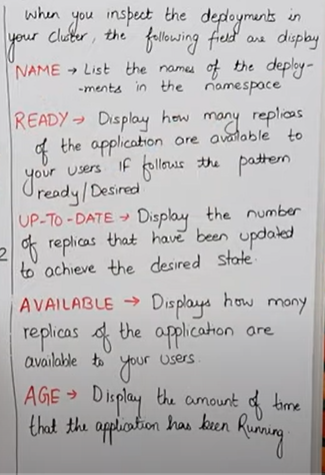 When you inspect the deployments in
your cluster, the following field are display
NAME → List the names of the deploy-
-ments in the namespace
READY → Display how many replicas
of the application are available to
your users If follows the pattern
ready/Desired
UP-TO-DATE → Display the number
of replicas that have been updated
2
to achieve the desired state.
AVAILABLE → Displays how many
replicas of the application are
available to your users.
AGE → Display the amount of time
that the application has been Running.